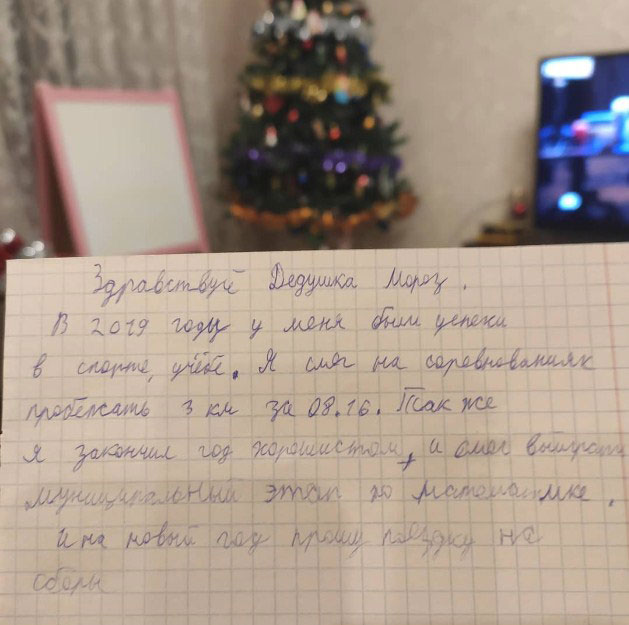 Здравствуй Дедушка Мороз.
В 2019 году у меня были успехи
в спорте, учёбе. Я смог на соревнованиях
пробежать 3 км за 08.16. Так же
я закончил год хорошистом, и смог выиграть
муниципальный этап по математике.
И на новый год прошу поездку на
сборы